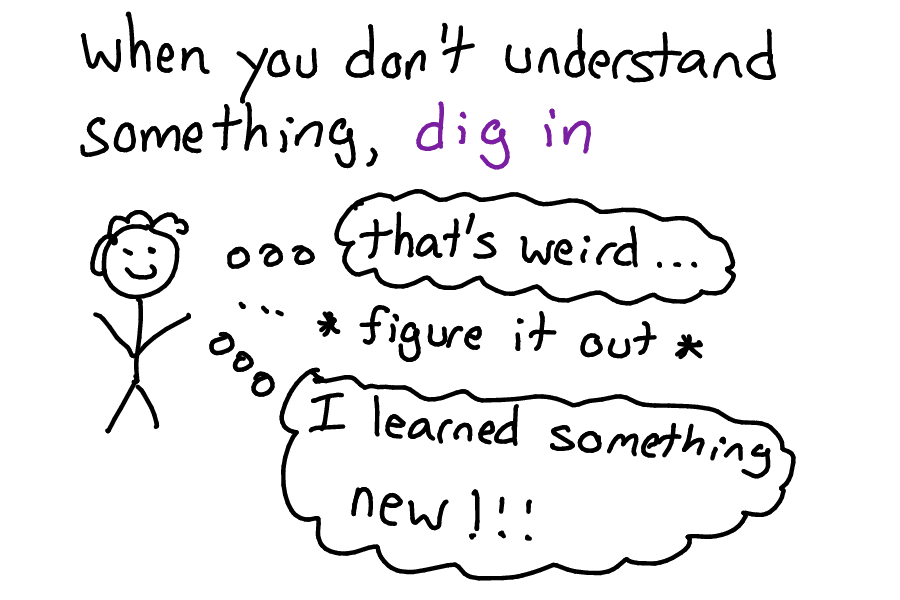 when you don't understand
something, dig in
that's weird ...
...
* figure it out *
I learned something
new!!!